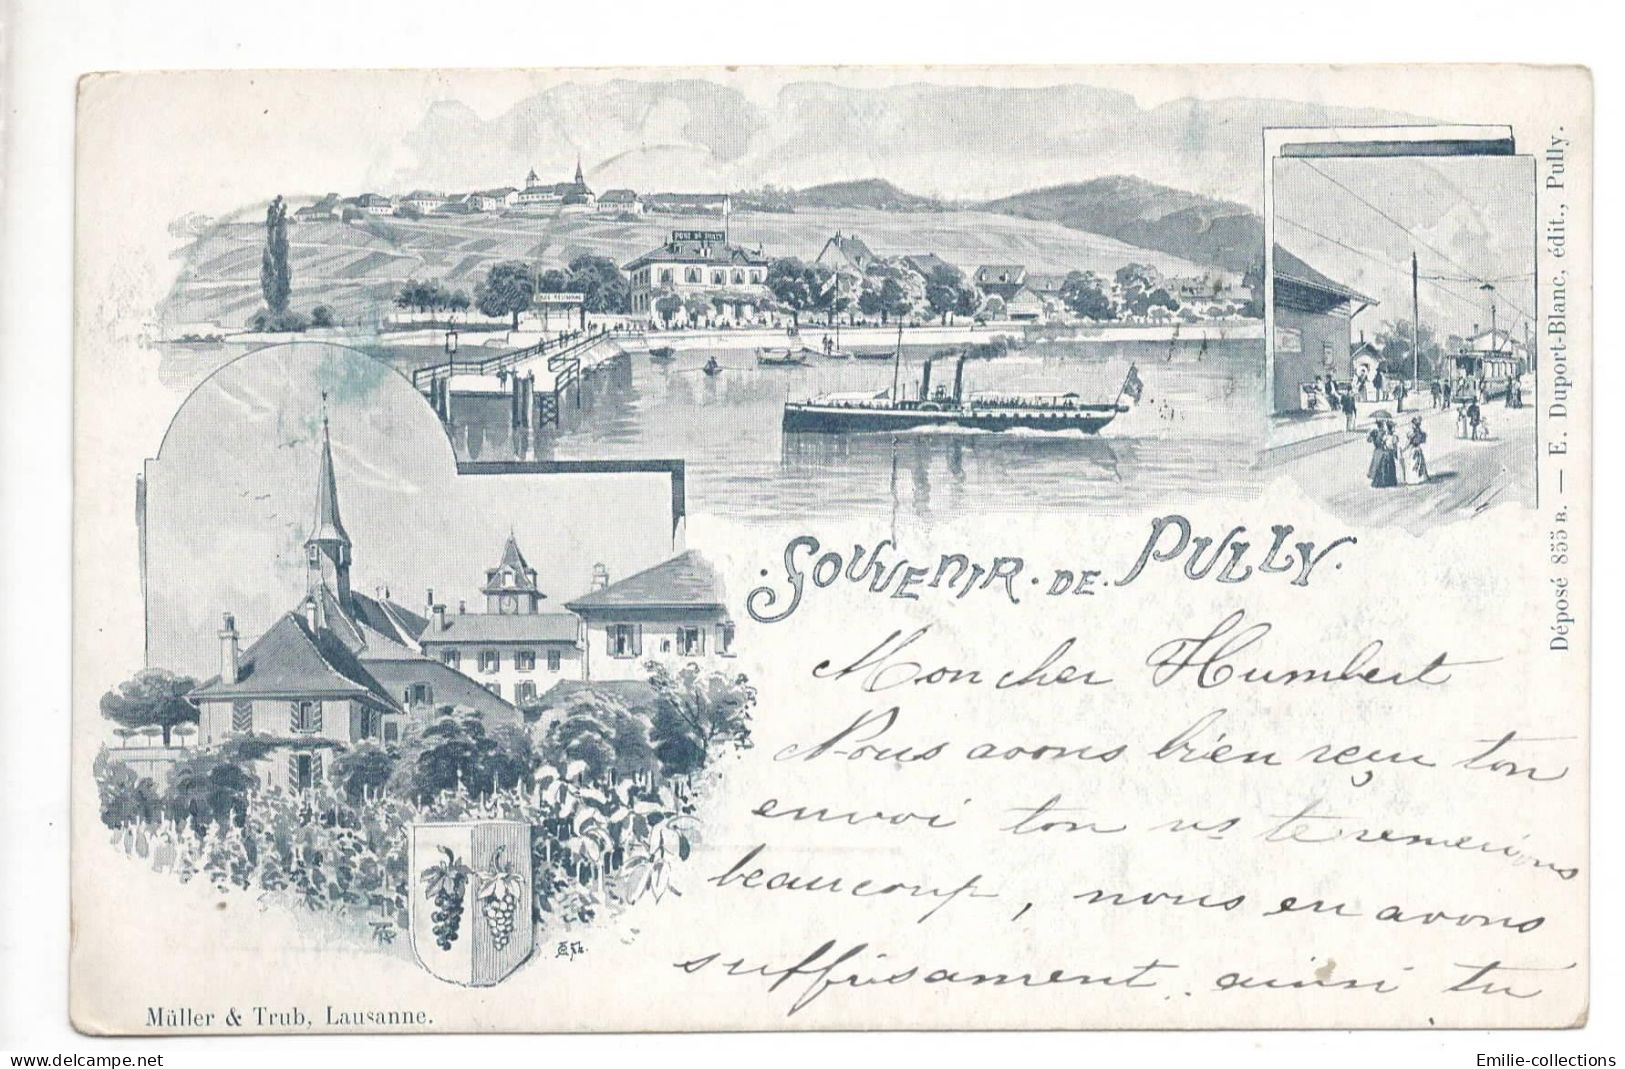 PORT DE PULLY
SOUVENIR DE PULLY.
Mon cher Humbert
Nous avons bien reçu ton
envoi ton ns te remercions
beaucoup, nous en avons
suffisament, ainsi tu
Déposé 855 B. — E. Duport-Blanc, édit., Pully.
Müller & Trub, Lausanne.
Emilie-collections